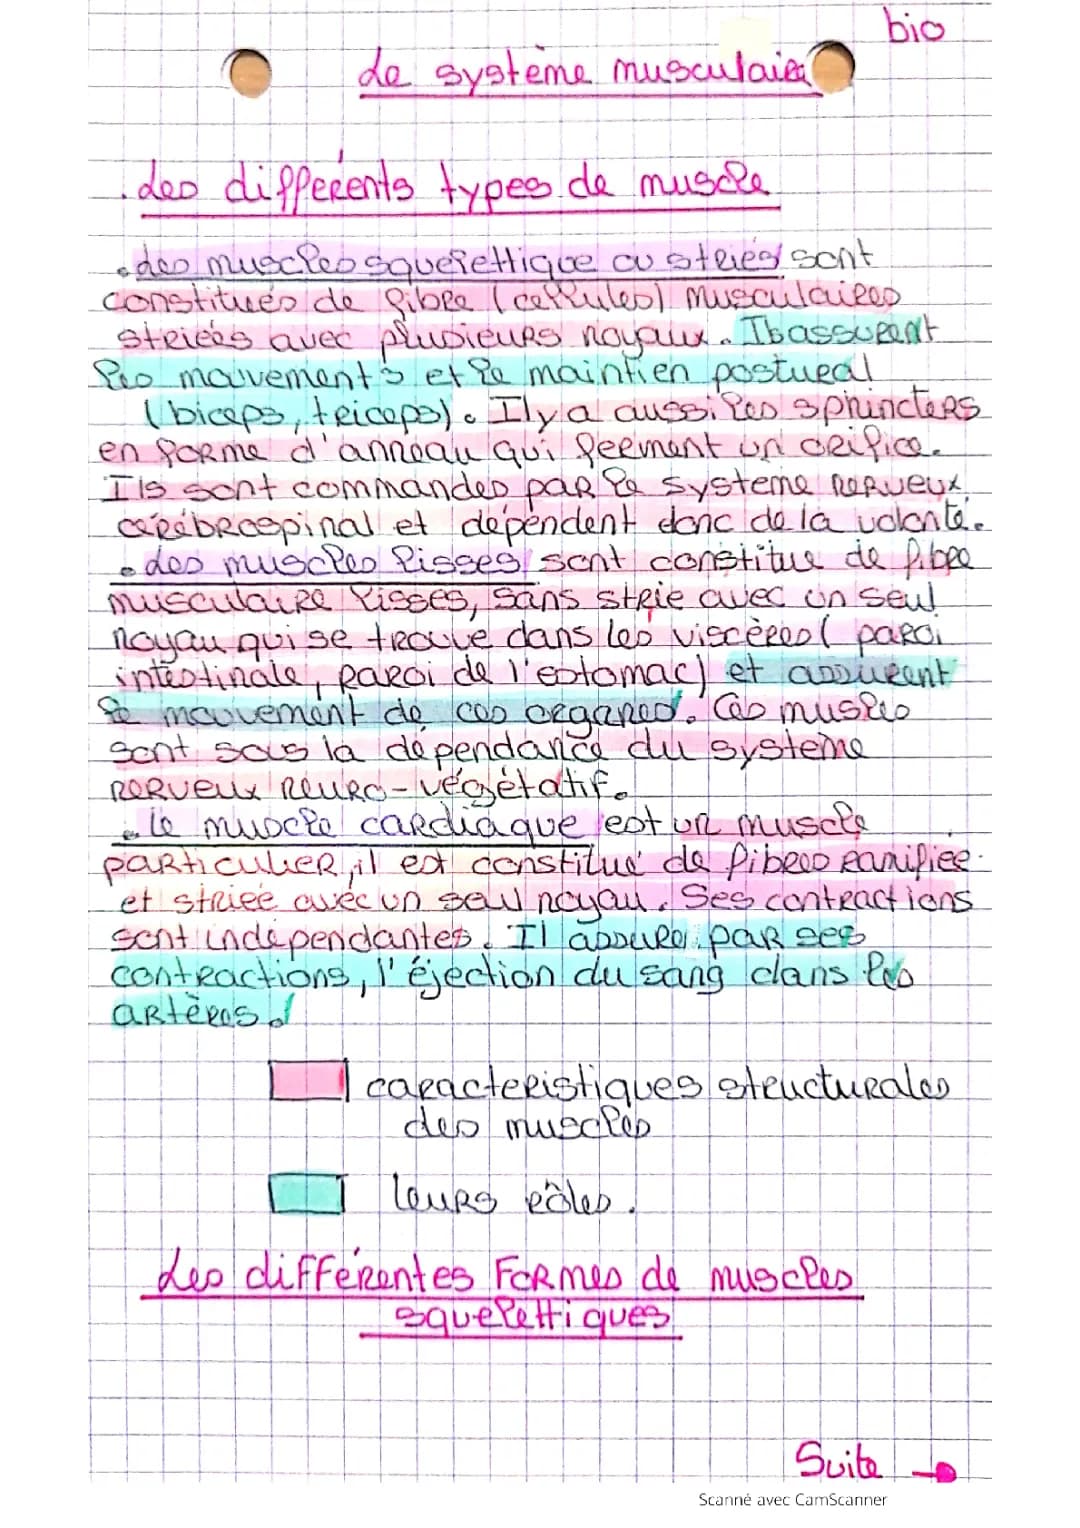 bio
Le système musculaire
Les différents types de muscle
. Les muscles squelettique ou striés sont
constitués de fibre (cellules) musculaires
striées avec plusieurs noyaux. Ils assurent
les mouvements et le maintien postural
(biceps, triceps). Il y a aussi les sphincters
en forme d'anneau qui ferment un orifice.
Ils sont commandés par le système nerveux
cérébrospinal et dépendent donc de la volonté.
. Les muscles lisses sont constitué de fibre
musculaire lisses, sans strie avec un seul
noyau qui se trouve dans les viscères (paroi
intestinale, paroi de l'estomac) et assurent
le mouvement de ces organes. Ces muscles
sont sous la dépendance du système
nerveux neuro-végétatif.
. Le muscle cardiaque est un muscle
particulier, il est constitué de fibres ramifiée
et striée avec un seul noyau. Ses contractions
sont indépendantes. Il assure, par ses
contractions, l'éjection du sang dans les
artères.
caractéristiques structurales
des muscles
leurs rôles.
Les différentes Formes de muscles
squelettiques
Suite →
Scanné avec CamScanner